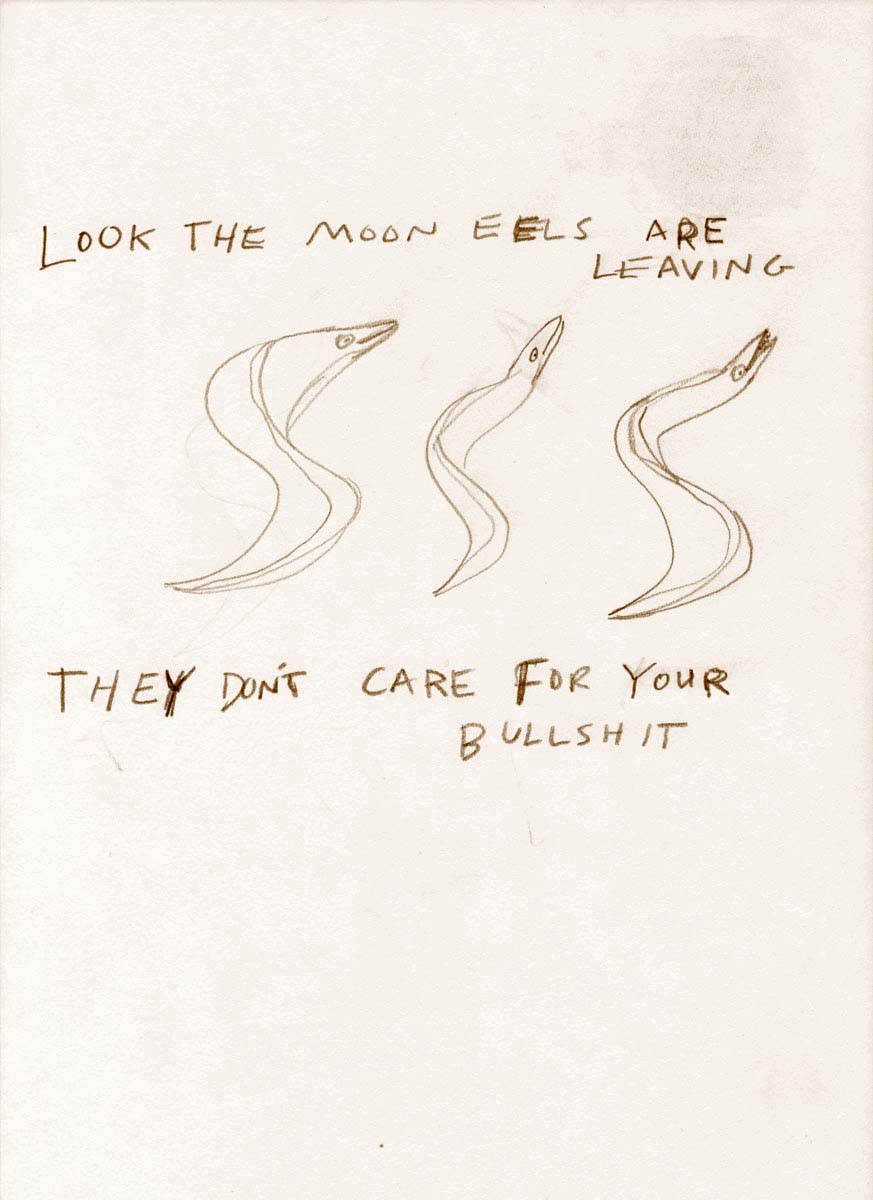 LOOK THE MOON EELS ARE
LEAVING
THEY DON'T CARE FOR YOUR
BULLSHIT